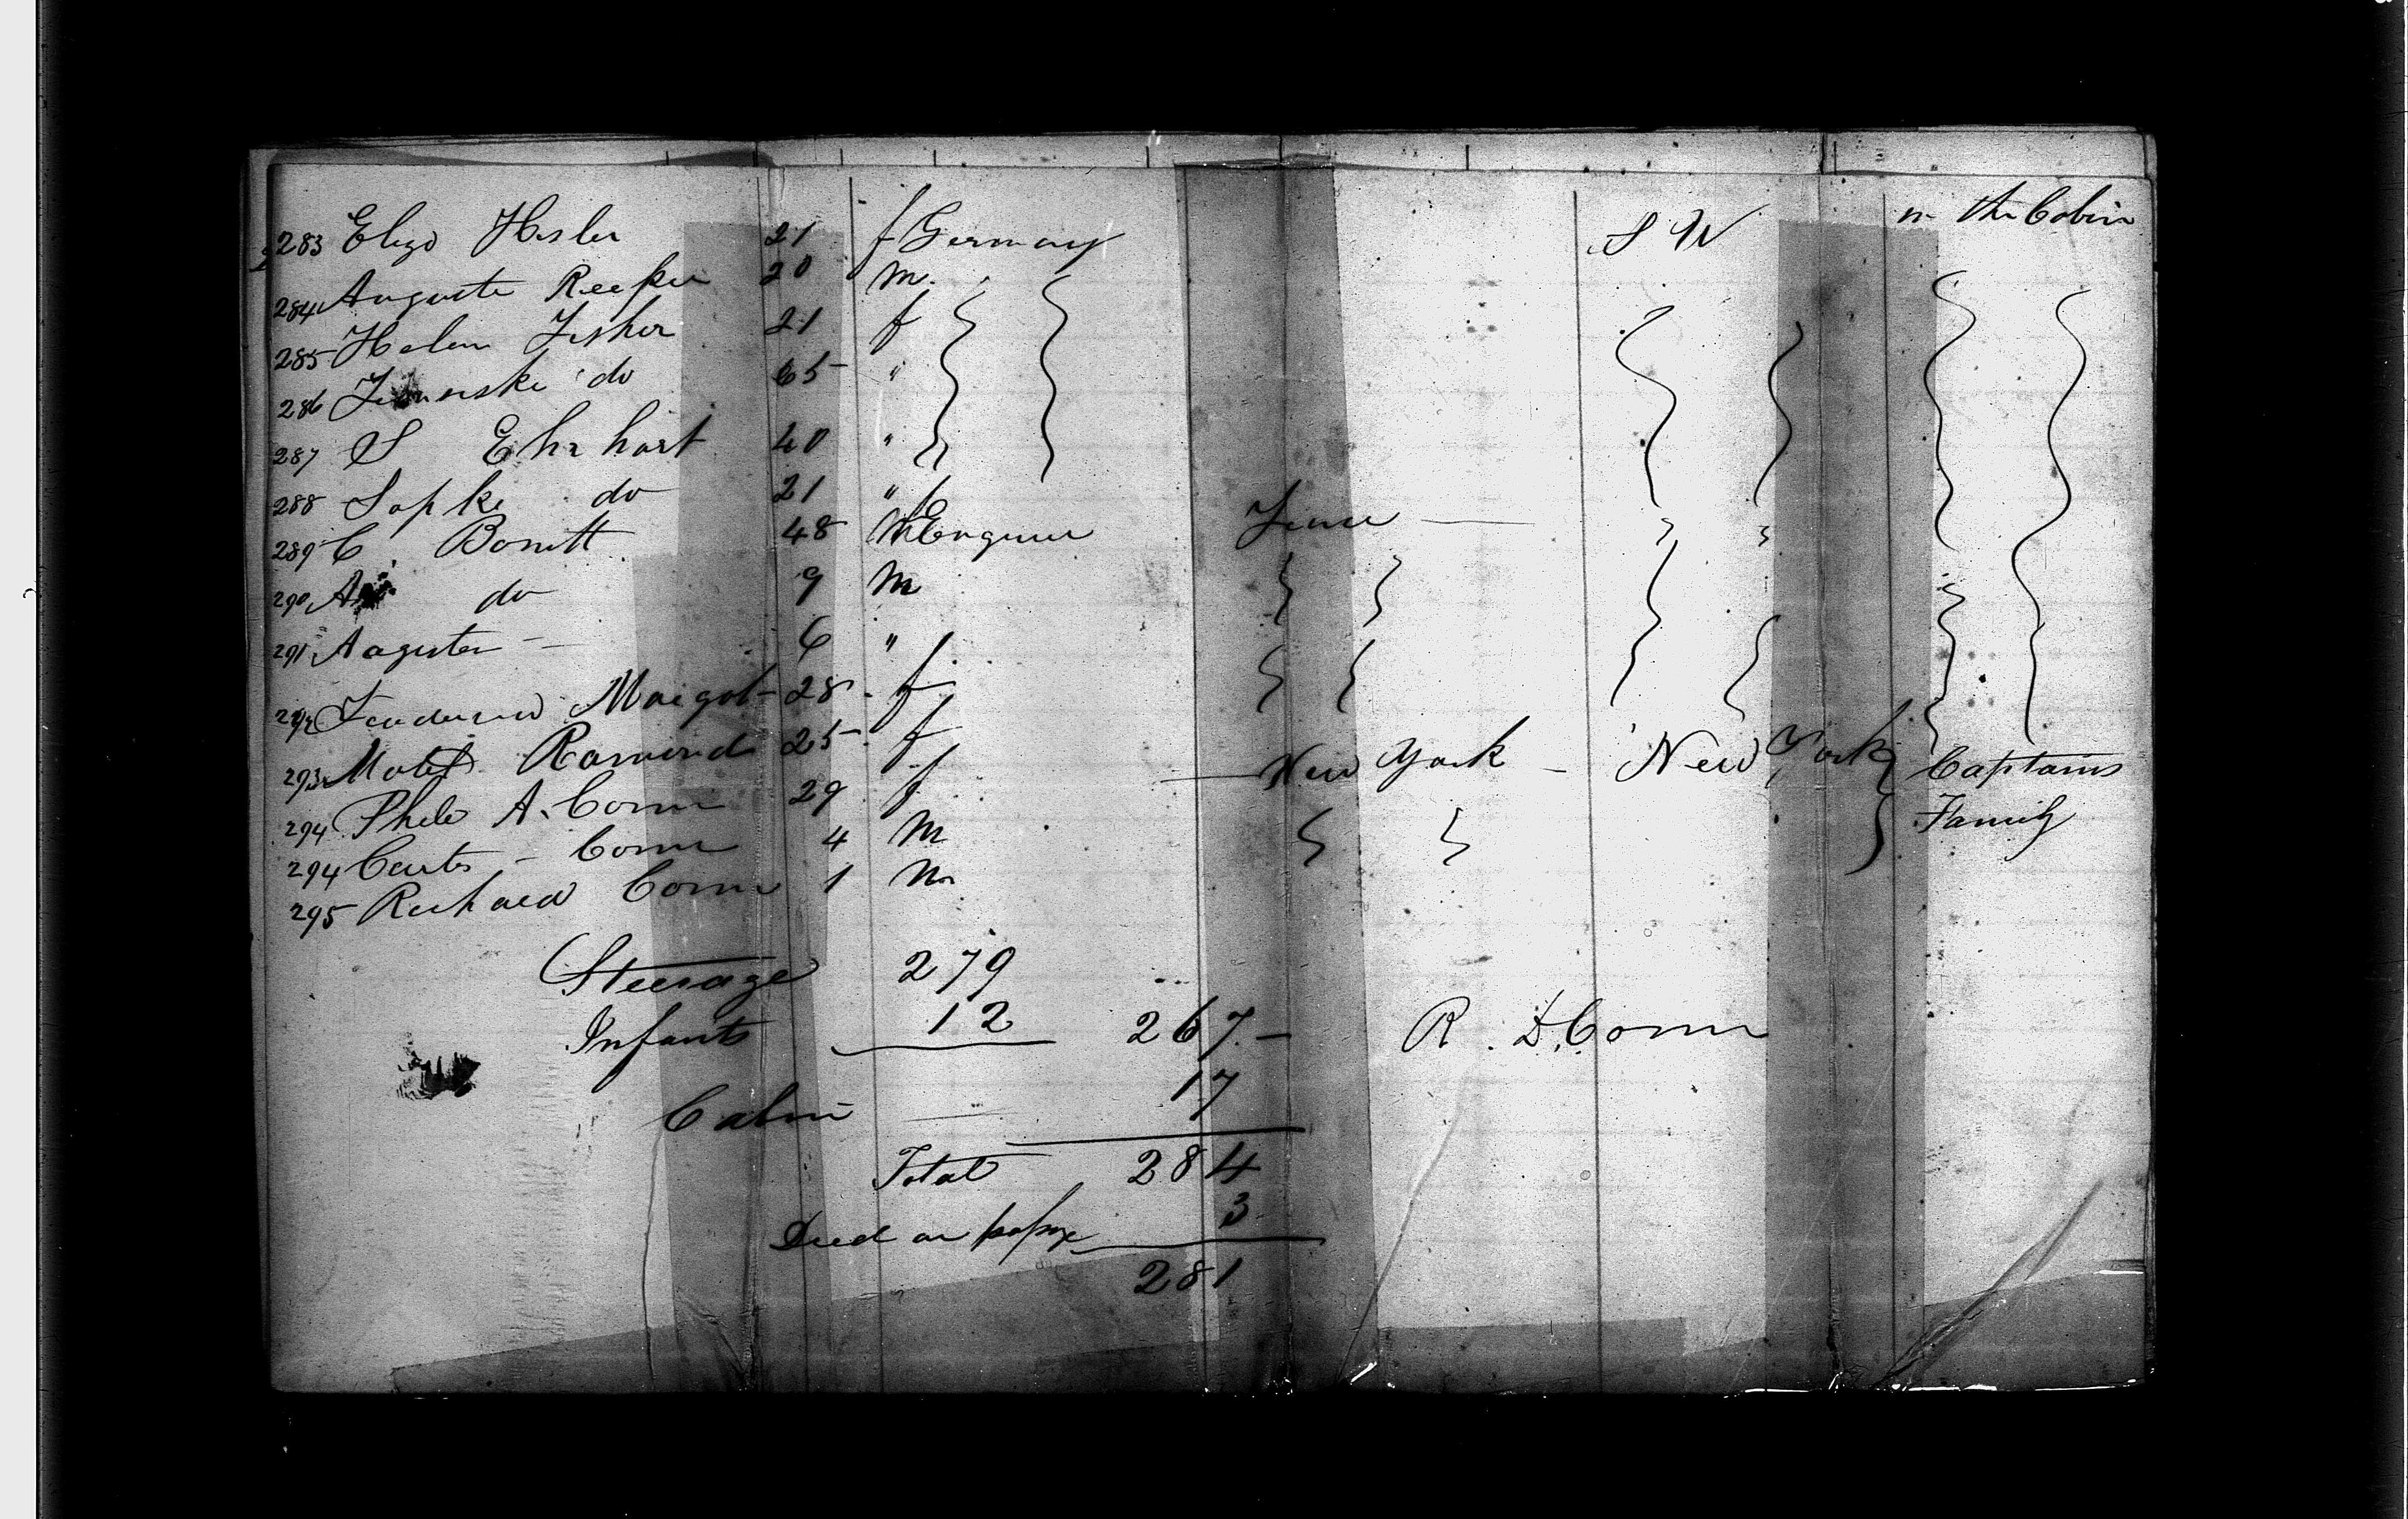 283 Eliza Hesler 21 f Germany S W in the Cabin
284 Auguste Reeker 20 m
285 Helen Fisher 21 f
286 do 65 "
287 S Ehrhart 40 "
288 Sopke do 21 " f
289 C Bonett 48 M Engineer France
290 do 9 m
291 Auguster 6 "
292 Margot 28 f
293 Ramond 25 f
294 Phele A. Conn 29 f New York New York Captains
294 Curts Conn 4 m Family
295 Richard Conn 1 m
Steerage 279
Infants 12 267 R. D. Conn
Cabin 17
Total 284
Died on passage 3
281